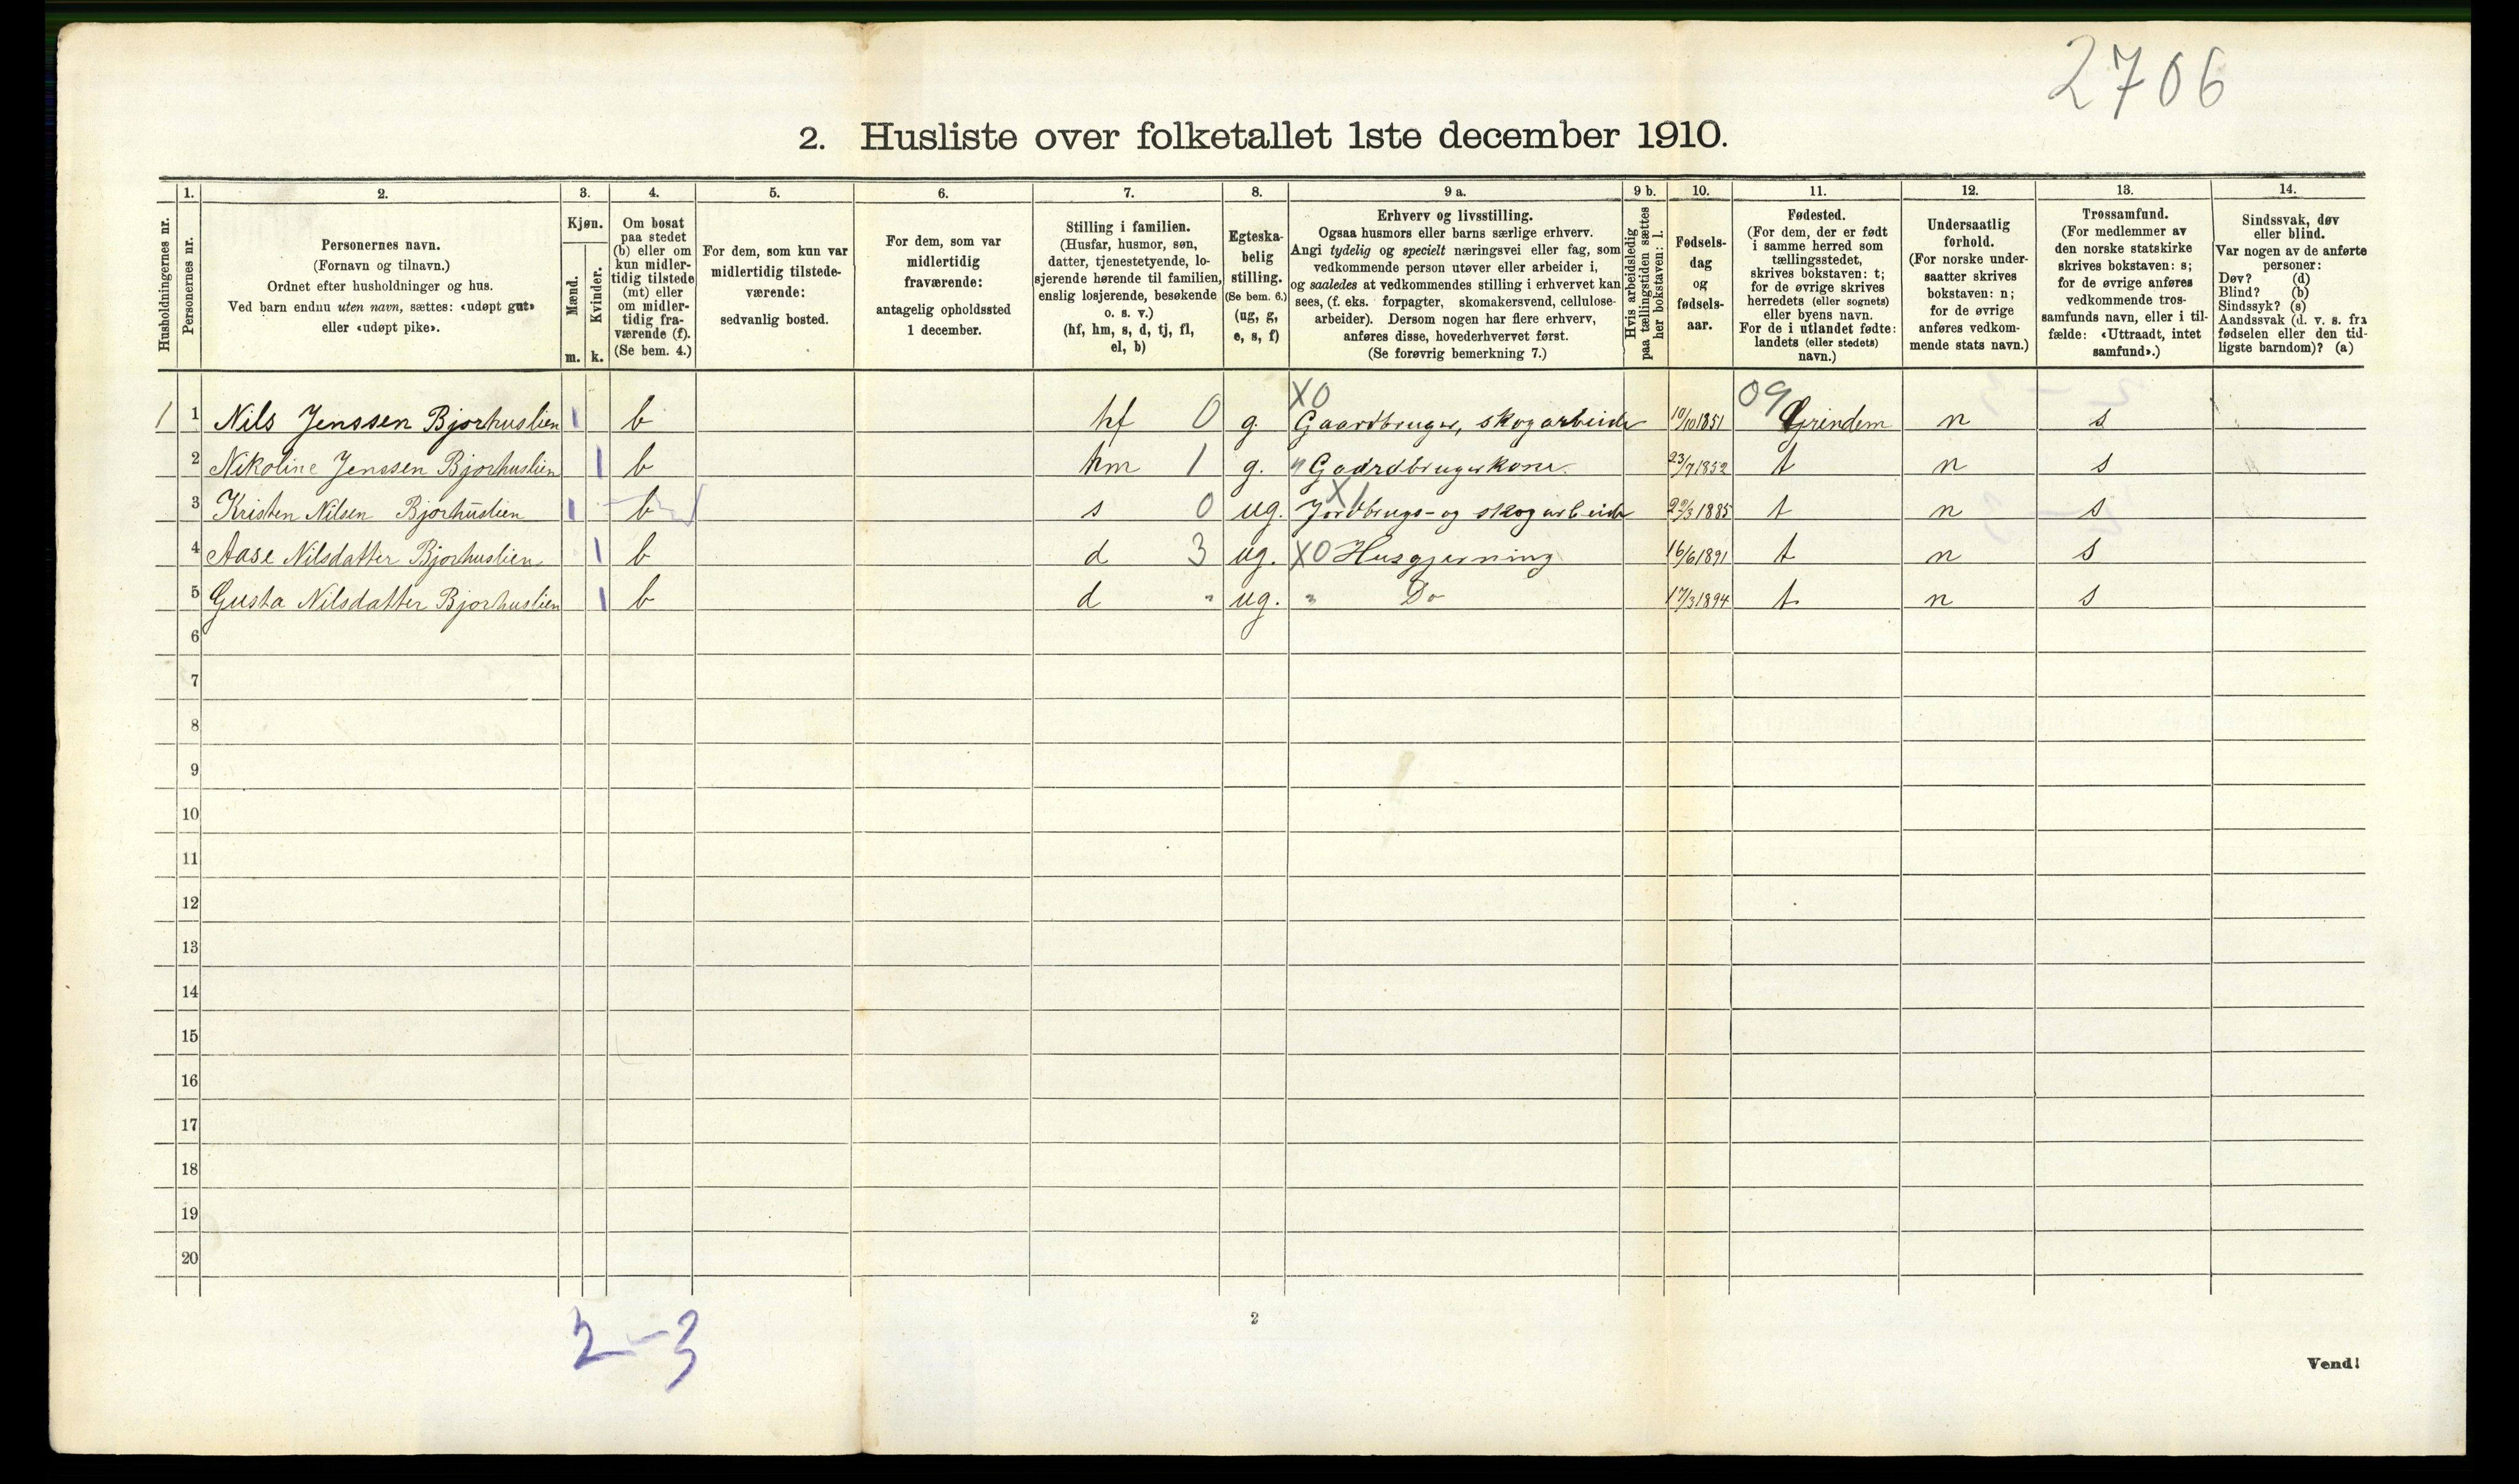 2706
2. Husliste over folketallet 1ste december 1910.
1. 2. 3. 4. 5. 6. 7. 8. 9 a. 9 b. 10. 11. 12. 13. 14.
Husholdningernes nr.
Personernes nr.
Personernes navn.
(Fornavn og tilnavn.)
Ordnet efter husholdninger og hus.
Ved barn endnu uten navn, sættes: «udøpt gut»
eller «udøpt pike».
Kjøn.
Mænd.
Kvinder.
m. k.
Om bosat
paa stedet
(b) eller om
kun midler-
tidig tilstede
(mt) eller
om midler-
tidig fra-
værende (f).
(Se bem. 4.)
For dem, som kun var
midlertidig tilstede-
værende:
sedvanlig bosted.
For dem, som var
midlertidig
fraværende:
antagelig opholdssted
1 december.
Stilling i familien.
(Husfar, husmor, søn,
datter, tjenestetyende, lo-
sjerende hørende til familien,
enslig losjerende, besøkende
o. s. v.)
(hf, hm, s, d, tj, fl,
el, b)
Egteska-
belig
stilling.
(Se bem. 6.)
(ug, g,
e, s, f)
Erhverv og livsstilling.
Ogsaa husmors eller barns særlige erhverv.
Angi tydelig og specielt næringsvei eller fag, som
vedkommende person utøver eller arbeider i,
og saaledes at vedkommendes stilling i erhvervet kan
sees, (f. eks. forpagter, skomakersvend, cellulose-
arbeider). Dersom nogen har flere erhverv,
anføres disse, hovederhvervet først.
(Se forøvrig bemerkning 7.)
Hvis arbeidsledig
paa tællingstiden sættes
her bokstaven: l.
Fødsels-
dag
og
fødsels-
aar.
Fødested.
(For dem, der er født
i samme herred som
tællingsstedet,
skrives bokstaven: t;
for de øvrige skrives
herredets (eller sognets)
eller byens navn.
For de i utlandet fødte:
landets (eller stedets)
navn.)
Undersaatlig
forhold.
(For norske under-
saatter skrives
bokstaven: n;
for de øvrige
anføres vedkom-
mende stats navn.)
Trossamfund.
(For medlemmer av
den norske statskirke
skrives bokstaven: s;
for de øvrige anføres
vedkommende tros-
samfunds navn, eller i til-
fælde: «Uttraadt, intet
samfund».)
Sindssvak, døv
eller blind.
Var nogen av de anførte
personer:
Døv? (d)
Blind? (b)
Sindssyk? (s)
Aandssvak (d. v. s. fra
fødselen eller den tid-
ligste barndom)? (a)
XO 09
1 1 Nils Jenssen Bjorhuslien 1 b hf 0 g. Gaardbruger, skogarbeide 10/10 1851 Grindem n s
2 Nikoline Jenssen Bjorhuslien 1 b hm 1 g. " Gaardbrugerkone. 23/7 1852 t n s
X1
3 Kristen Nilsen Bjorhuslien 1 b s 0 ug. Jordbrugs- og skogarbeide 1885 t n s
4 Aase Nilsdatter Bjorhuslien 1 b d 3 ug. XO Husgjerning 16/6 1891 t n s
5 Gusta Nilsdatter Bjorhuslien 1 b d " ug. " Do 17/3 1894 t n s
6
7
8
9
10
11
12
13
14
15
16
17
18
19
20
2-3
2
Vend!